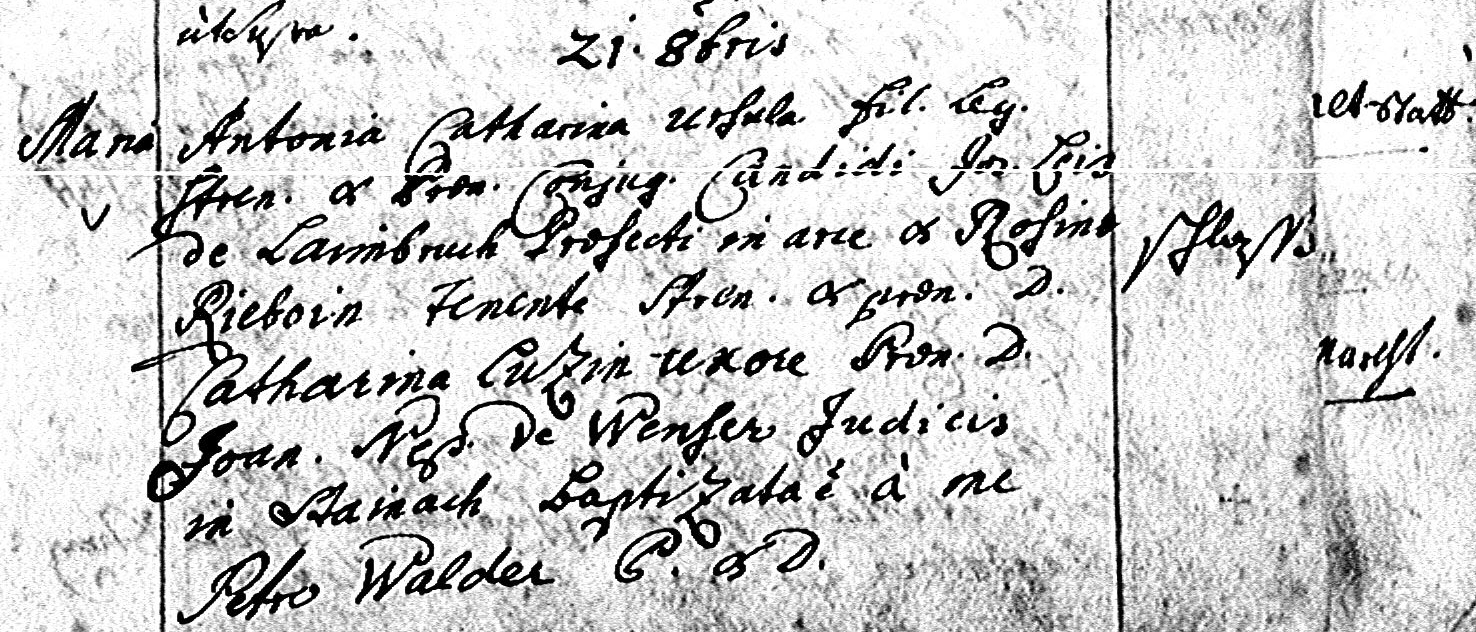 ut supra.
21. 8bris
Maria Antonia Catharina Ursula fil. Leg.
Stren. & Præn. Conjug. Candidi Jos. Leis
de Laimbruch Præfecti in arce & Rosinæ
Rieboin tenente Stren. & præn. D.
Catharina Cuzin uxore Præn. D.
Joan. Nep. de Wenser Judicis
in Stainach Baptizata ê à me
Petro Walder C. & D.
schloss